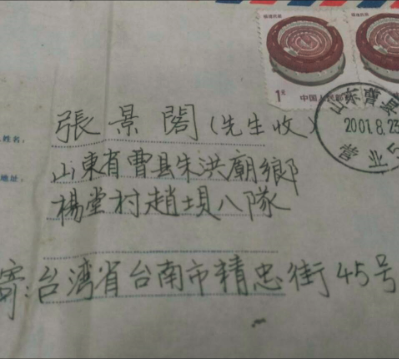 1元
中国人民邮政
2001.8.23
姓名,
張景閣(先生收)
地址,
山東省曹县朱洪廟鄉
楊堂村趙垻八隊
寄:台湾省台南市精忠街45号